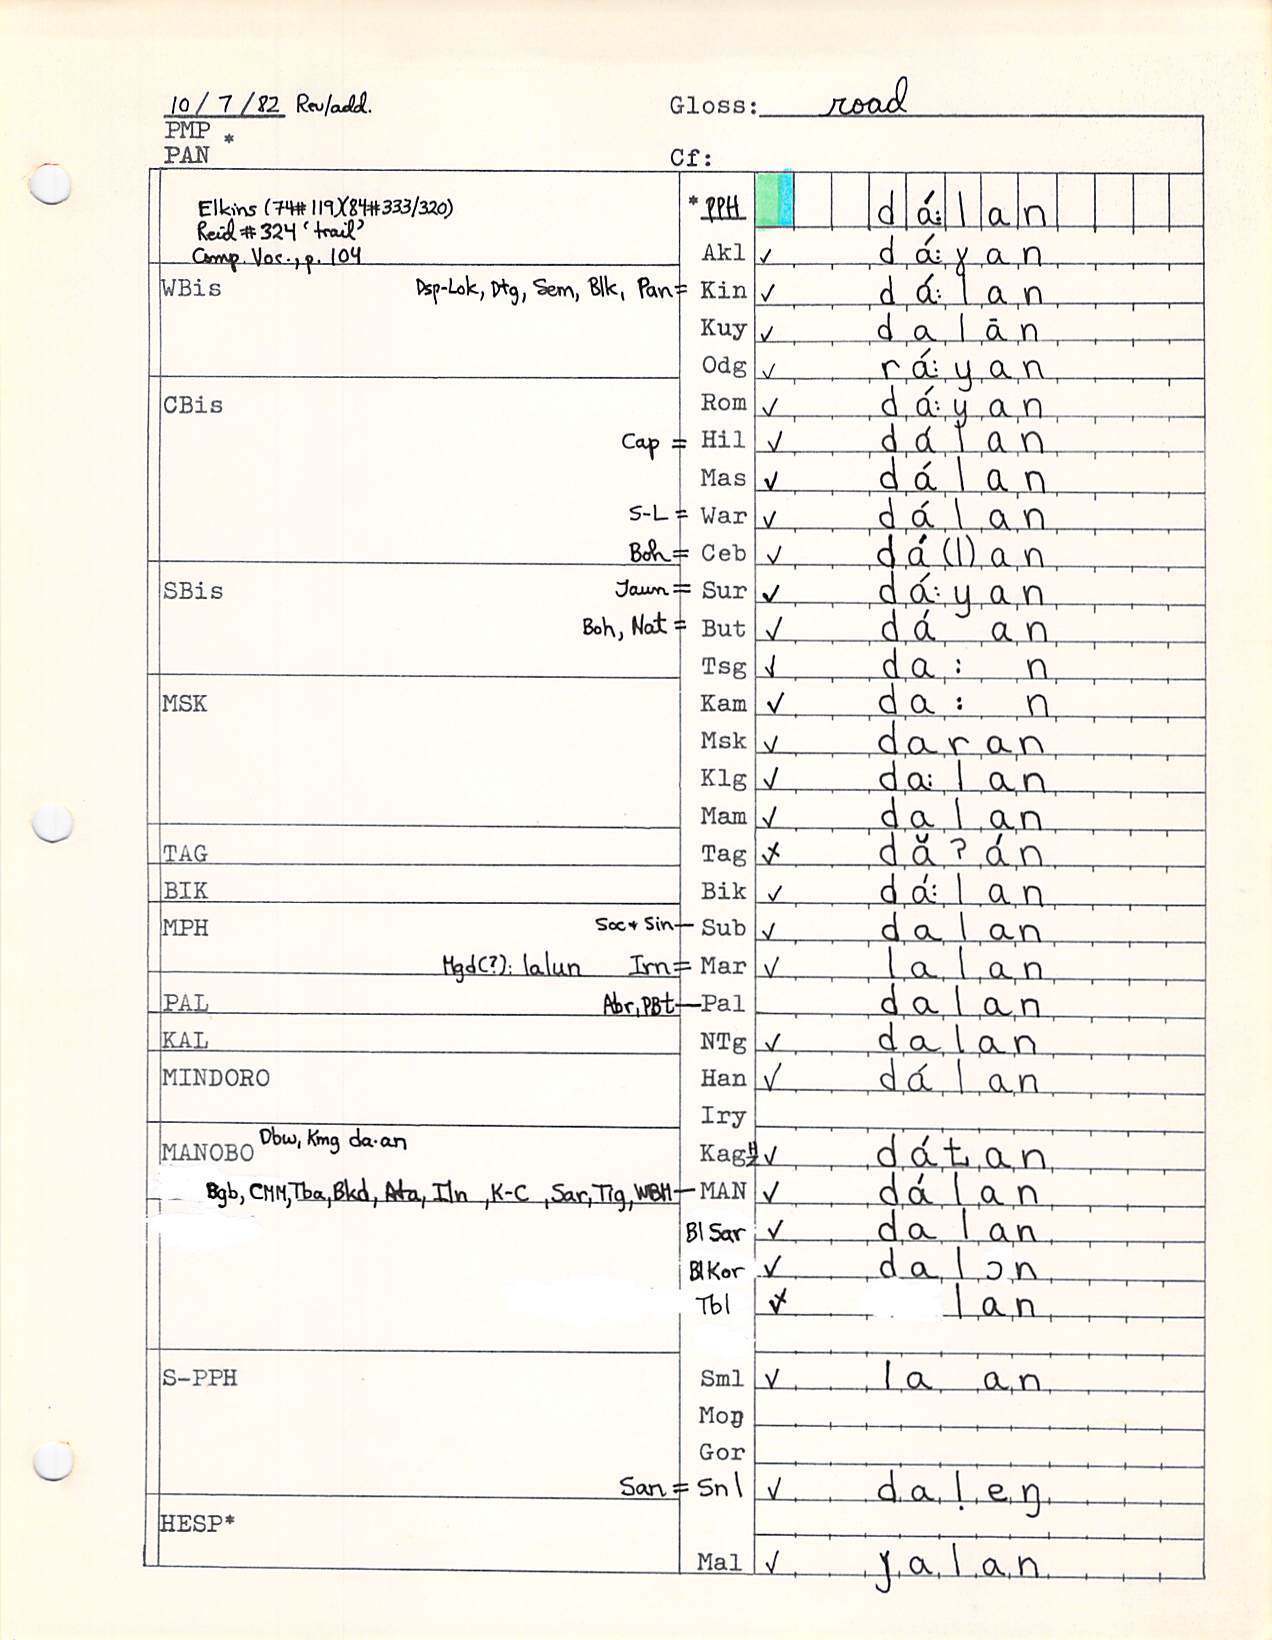 10/7/82 Rev/add. Gloss: road
PMP *
PAN Cf:
Elkins (74#119)(84#333/320) *PPH dá:lan
Reid #324 'trail'
Comp. Voc., p. 104 Akl ✓ dá:ɣan
WBis Dsp-Lok, Dtg, Sem, Blk, Pan= Kin ✓ dá:lan
Kuy ✓ dalān
Odg ✓ rá:yan
CBis Rom ✓ dá:yan
Cap = Hil ✓ dálan
Mas ✓ dálan
S-L = War ✓ dálan
Boh = Ceb ✓ dá(l)an
SBis Jaun = Sur ✓ dá:yan
Boh, Nat = But ✓ dá an
Tsg ✓ da: n
MSK Kam ✓ da: n
Msk ✓ daran
Klg ✓ da:lan
Mam ✓ dalan
TAG Tag x dăʔán
BIK Bik ✓ dá:lan
MPH Soc+Sin— Sub ✓ dalan
Mgd(?): lalun Irn= Mar ✓ lalan
PAL Abr, PBt— Pal dalan
KAL NTg ✓ dalan
MINDORO Han ✓ dálan
Iry
MANOBO Dbw, Kmg da·an Kag ✓ dátan
Bgb, CMM, Tba, Bkd, Ata, Iln, K-C, Sar, Tig, WBM— MAN ✓ dálan
Bl Sar ✓ dalan
Bl Kor ✓ dalɔn
Tbl x lan
S-PPH Sml ✓ la an
Moŋ
Gor
San = Snl ✓ daḷeŋ
HESP*
Mal ✓ ɟalan